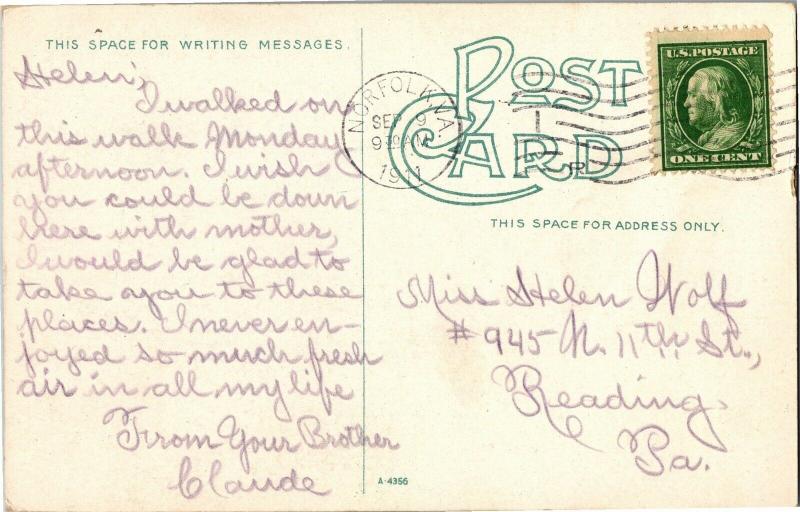 THIS SPACE FOR WRITING MESSAGES.
Helen;
I walked on
this walk Monday
afternoon. I wish
you could be down
here with mother,
I would be glad to
take you to these
places. I never en-
joyed so much fresh
air in all my life
From Your Brother
Claude
A-4356
POST
CARD
NORFOLK, VA.
SEP 9
9 30 AM
1911
U.S. POSTAGE
ONE CENT
THIS SPACE FOR ADDRESS ONLY.
Miss Helen Wolf
# 945 N. 11th. St.,
Reading,
Pa.